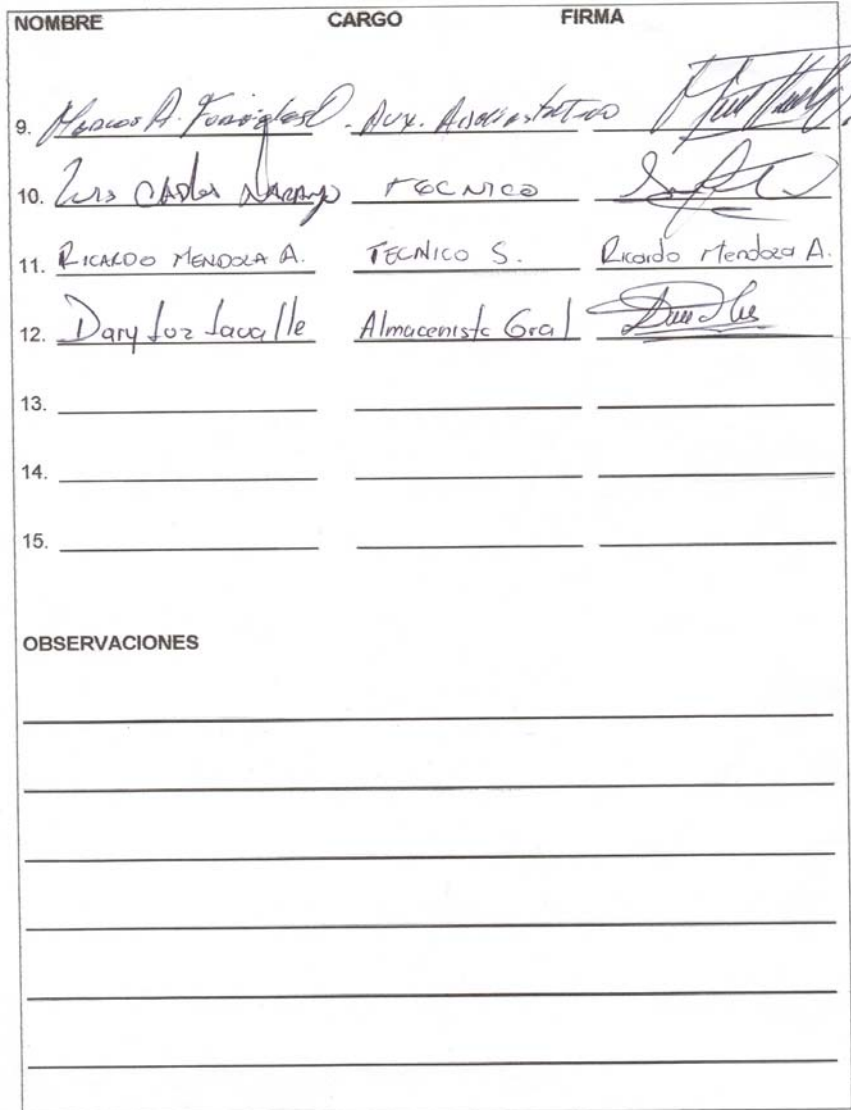 NOMBRE CARGO FIRMA
9. Marcos A. Aux. Administrativo
10. Luis Carlos Naranjo TECNICO
11. RICARDO MENDOZA A. TECNICO S. Ricardo Mendoza A.
12. Dary Luz Lavalle Almacenista Gral
13.
14.
15.
OBSERVACIONES